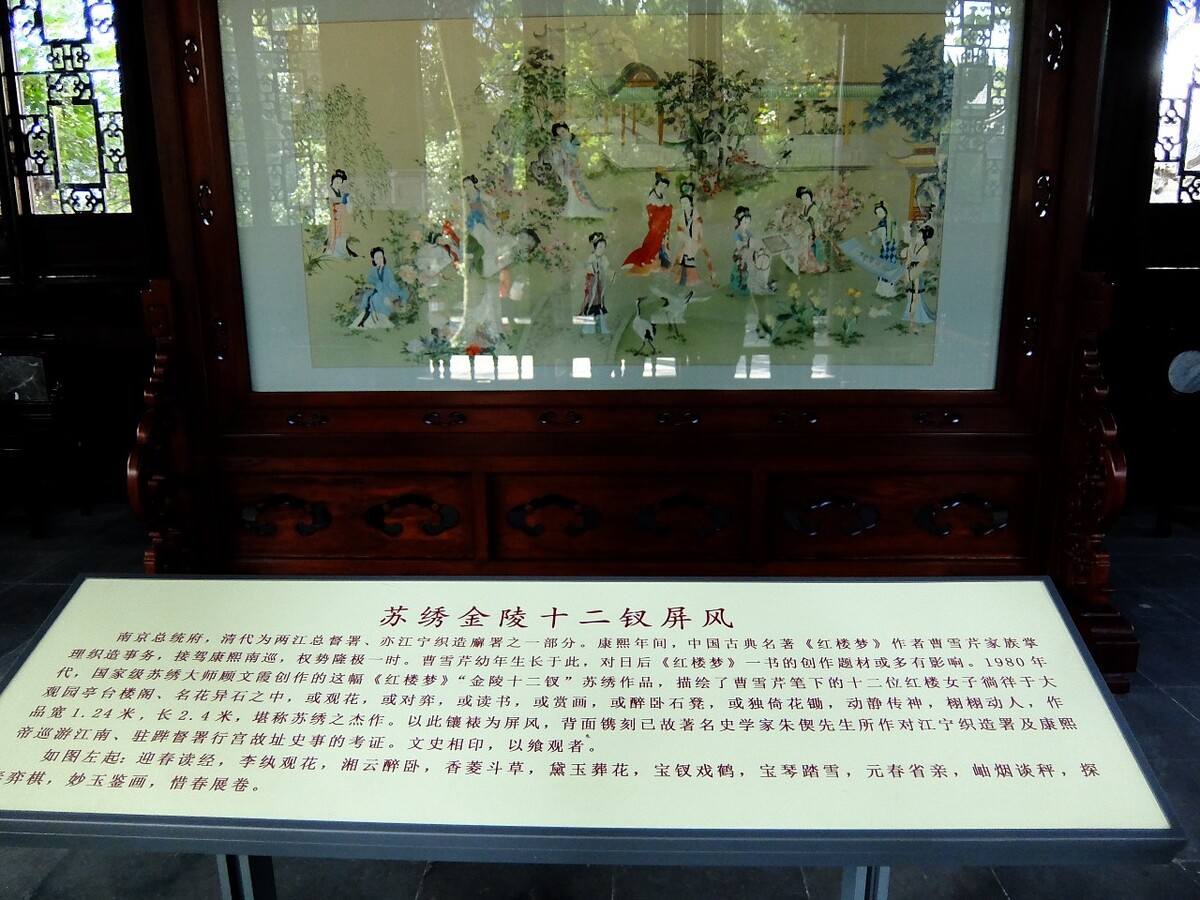 苏绣金陵十二钗屏风
南京总统府，清代为两江总督署、亦江宁织造廨署之一部分。康熙年间，中国古典名著《红楼梦》作者曹雪芹家族掌
理织造事务，接驾康熙南巡，权势隆极一时。曹雪芹幼年生长于此，对日后《红楼梦》一书的创作题材或多有影响。1980年
代，国家级苏绣大师顾文霞创作的这幅《红楼梦》“金陵十二钗”苏绣作品，描绘了曹雪芹笔下的十二位红楼女子徜徉于大
观园亭台楼阁、名花异石之中，或观花，或对弈，或读书，或赏画，或醉卧石凳，或独倚花锄，动静传神，栩栩动人，作
品宽1.24米，长2.4米，堪称苏绣之杰作。以此镶裱为屏风，背面镌刻已故著名史学家朱偰先生所作对江宁织造署及康熙
帝巡游江南、驻跸督署行宫故址史事的考证。文史相印，以飨观者。
如图左起：迎春读经，李纨观花，湘云醉卧，香菱斗草，黛玉葬花，宝钗戏鹤，宝琴踏雪，元春省亲，岫烟谈秤，探
弈棋，妙玉鉴画，惜春展卷。